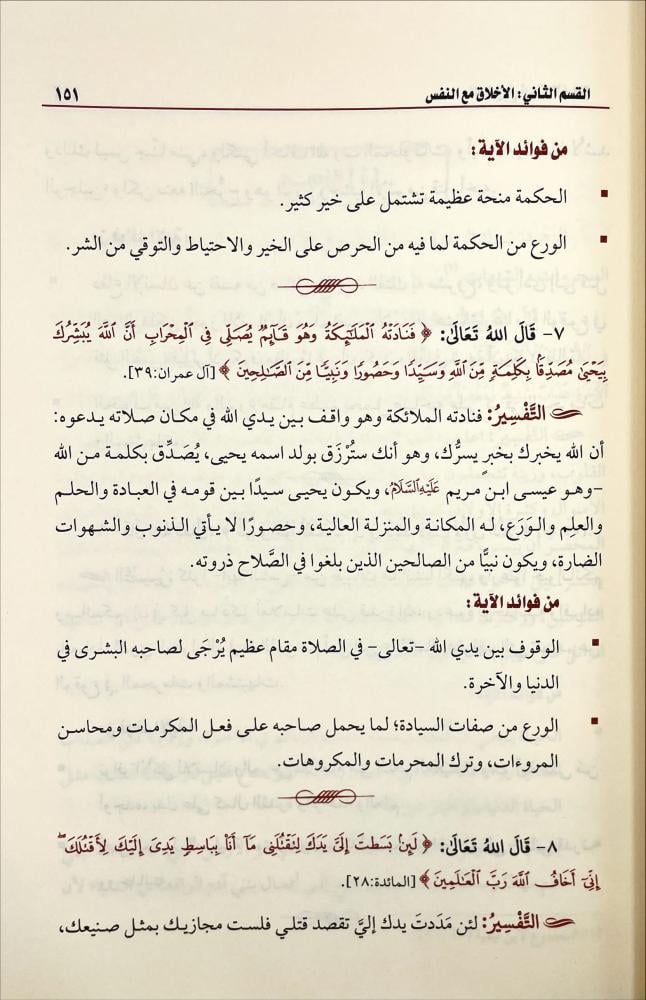 القسم الثاني: الأخلاق مع النفس ١٥١
من فوائد الآية:
▪ الحكمة منحة عظيمة تشتمل على خير كثير.
▪ الورع من الحكمة لما فيه من الحرص على الخير والاحتياط والتوقي من الشر.
٧- قَالَ اللهُ تَعَالَىٰ: ﴿ فَنَادَتْهُ الْمَلَٰٓئِكَةُ وَهُوَ قَآئِمٌ يُصَلِّي فِي الْمِحْرَابِ أَنَّ اللَّهَ يُبَشِّرُكَ
بِيَحْيَىٰ مُصَدِّقًۢا بِكَلِمَةٍ مِّنَ اللَّهِ وَسَيِّدًا وَحَصُورًا وَنَبِيًّا مِّنَ الصَّٰلِحِينَ ﴾ [آل عمران:٣٩].
التَّفْسِيرُ: فنادته الملائكة وهو واقف بين يدي الله في مكان صلاته يدعوه:
أن الله يخبرك بخبرٍ يسرُّك، وهو أنك ستُرْزَق بولد اسمه يحيى، يُصَدِّق بكلمة من الله
-وهو عيسى ابن مريم عَلَيْهِ السَّلَامُ، ويكون يحيى سيدًا بين قومه في العبادة والحلم
والعلِم والوَرَع، له المكانة والمنزلة العالية، وحصورًا لا يأتي الذنوب والشهوات
الضارة، ويكون نبيًّا من الصالحين الذين بلغوا في الصَّلاح ذروته.
من فوائد الآية:
▪ الوقوف بين يدي الله -تعالى- في الصلاة مقام عظيم يُرْجَى لصاحبه البشرى في
الدنيا والآخرة.
▪ الورع من صفات السيادة؛ لما يحمل صاحبه على فعل المكرمات ومحاسن
المروءات، وترك المحرمات والمكروهات.
٨- قَالَ اللهُ تَعَالَىٰ: ﴿ لَئِنۢ بَسَطتَ إِلَيَّ يَدَكَ لِتَقْتُلَنِي مَآ أَنَا۠ بِبَاسِطٍ يَدِيَ إِلَيْكَ لِأَقْتُلَكَ ۖ
إِنِّيٓ أَخَافُ اللَّهَ رَبَّ الْعَٰلَمِينَ ﴾ [المائدة:٢٨].
التَّفْسِيرُ: لئن مَدَدتَ يدك إليَّ تقصد قتلي فلست مجازيك بمثل صنيعك،